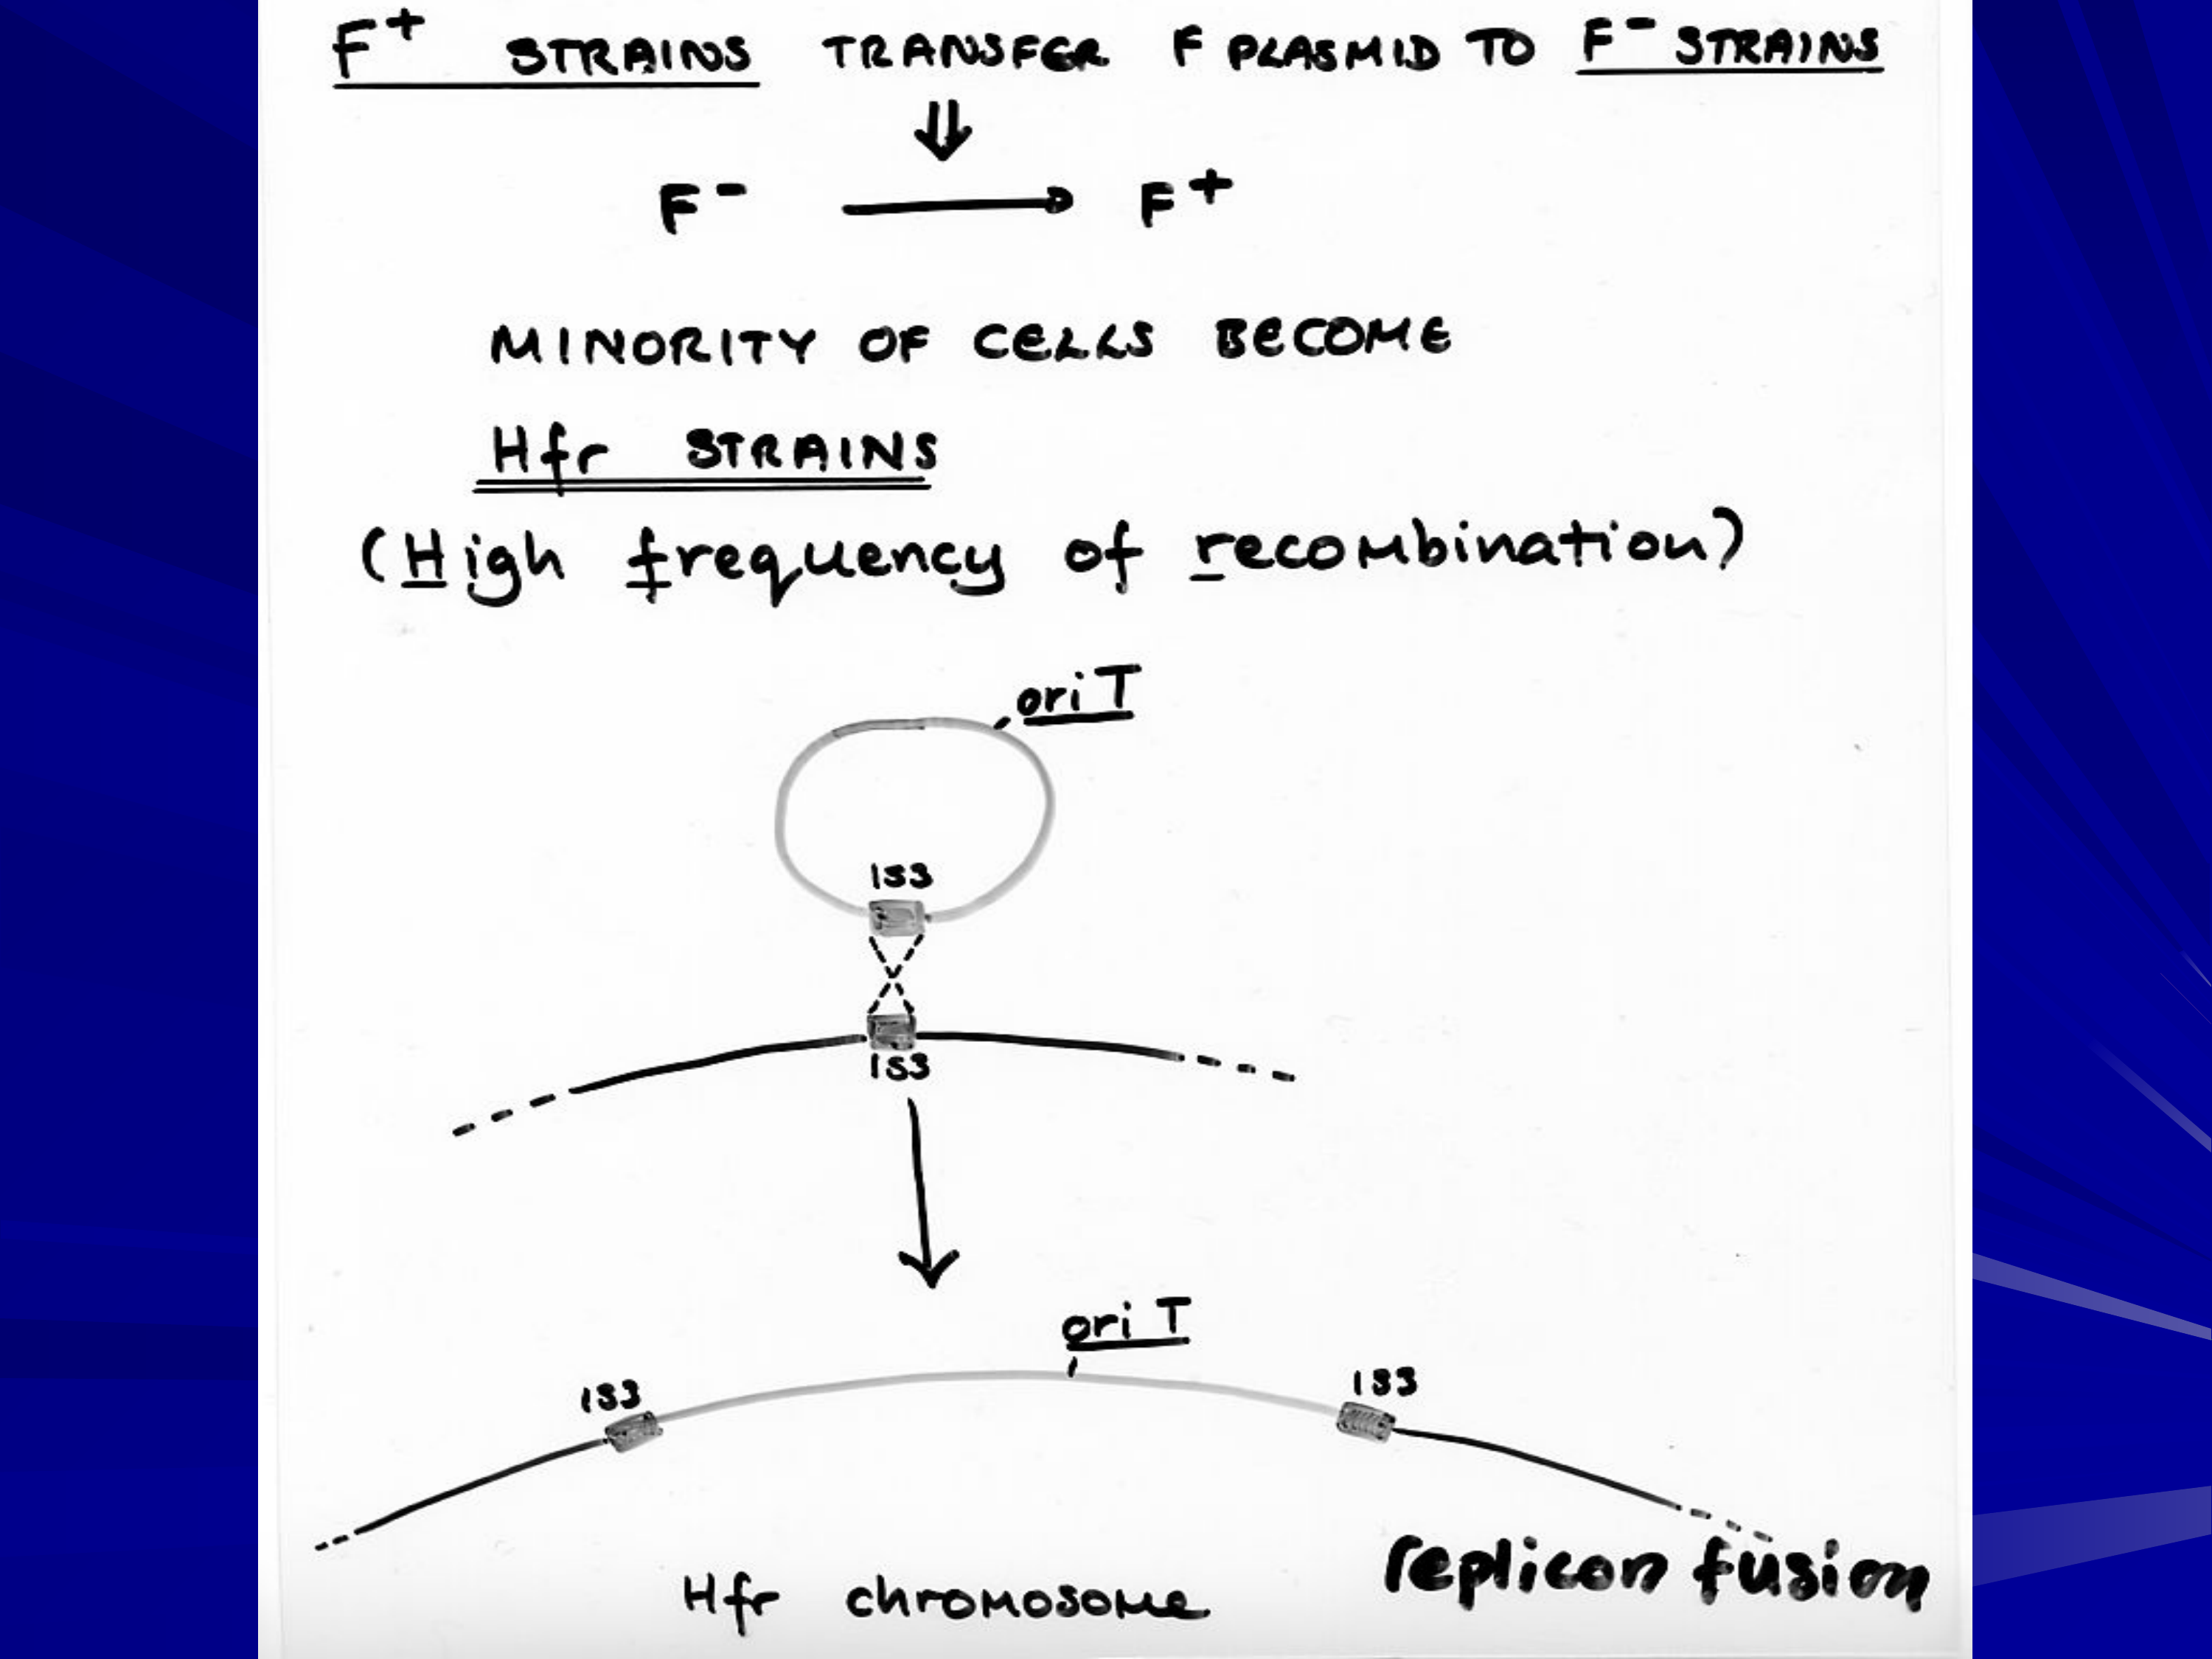 F+ STRAINS TRANSFER F PLASMID TO F- STRAINS
F- → F+
MINORITY OF CELLS BECOME
Hfr STRAINS
(High frequency of recombination)
ori T
IS3
IS3
ori T
IS3
IS3
Hfr chromosome
replicon fusion